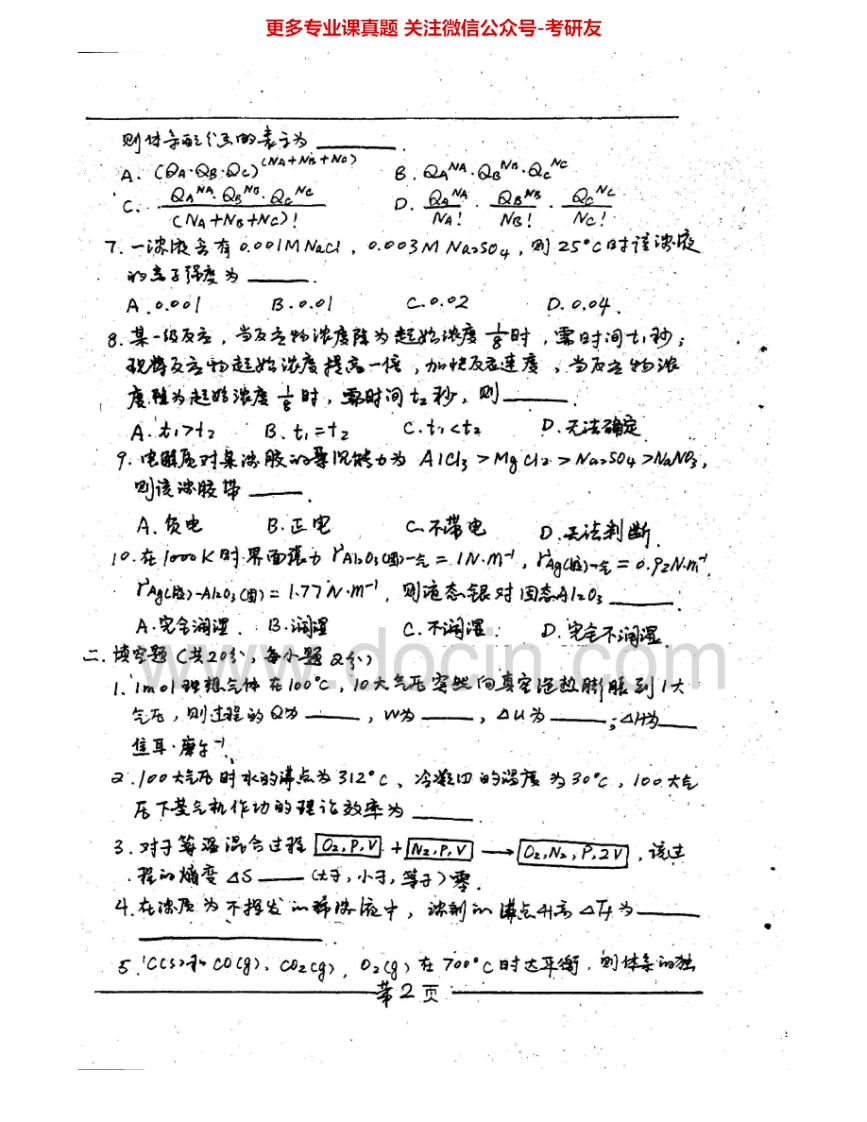 更多专业课真题 关注微信公众号-考研友
则体系配分函的表示为______.
A. (QA·QB·QC)^(NA+NB+NC) B. QA^NA·QB^NB·QC^NC
C. QA^NA·QB^NB·QC^NC/(NA+NB+NC)! D. QA^NA/NA!·QB^NB/NB!·QC^NC/NC!
7. 一溶液含有 0.001M NaCl, 0.003M Na2SO4, 则25°C时该溶液
的离子强度为______.
A. 0.001 B. 0.01 C. 0.02 D. 0.04.
8. 某一级反应, 当反应物浓度降为起始浓度1/8时, 需时间t1秒;
现将反应物起始浓度提高一倍, 加快反应速度, 当反应物浓
度降为起始浓度1/8时, 需时间t2秒, 则______.
A. t1>t2 B. t1=t2 C. t1<t2 D. 无法确定
9. 电解质对某溶胶的聚沉能力为 AlCl3 > MgCl2 > Na2SO4 > NaNO3,
则该溶胶带______.
A. 负电 B. 正电 C. 不带电 D. 无法判断.
10. 在1000K时界面张力 γAl2O3(固)-气 = 1N·m-1, γAg(液)-气 = 0.92N·m-1,
γAg(液)-Al2O3(固) = 1.77N·m-1, 则液态银对固态Al2O3______.
A. 完全润湿. B. 润湿 C. 不润湿. D. 完全不润湿.
www.docin.com
二. 填空题(共20分, 每小题2分)
1. 1mol理想气体在100°C, 10大气压突然向真空绝热膨胀到1大
气压, 则过程的Q为______, W为______, ΔU为______; ΔH为______
焦耳·摩尔-1.
2. 100大气压时水的沸点为312°C、冷凝 的温度为30°C, 100大气
压下蒸气机作功的理论效率为______
3. 对于等温混合过程 O2,P,V + N2,P,V → O2,N2,P,2V, 该过
程的熵变ΔS______(大于, 小于, 等于)零.
4. 在溶质为不挥发的稀溶液中, 溶剂的沸点升高ΔTb为______
______.
5. C(s)和CO(g), CO2(g), O2(g)在700°C时达平衡, 则体系的独
第2页